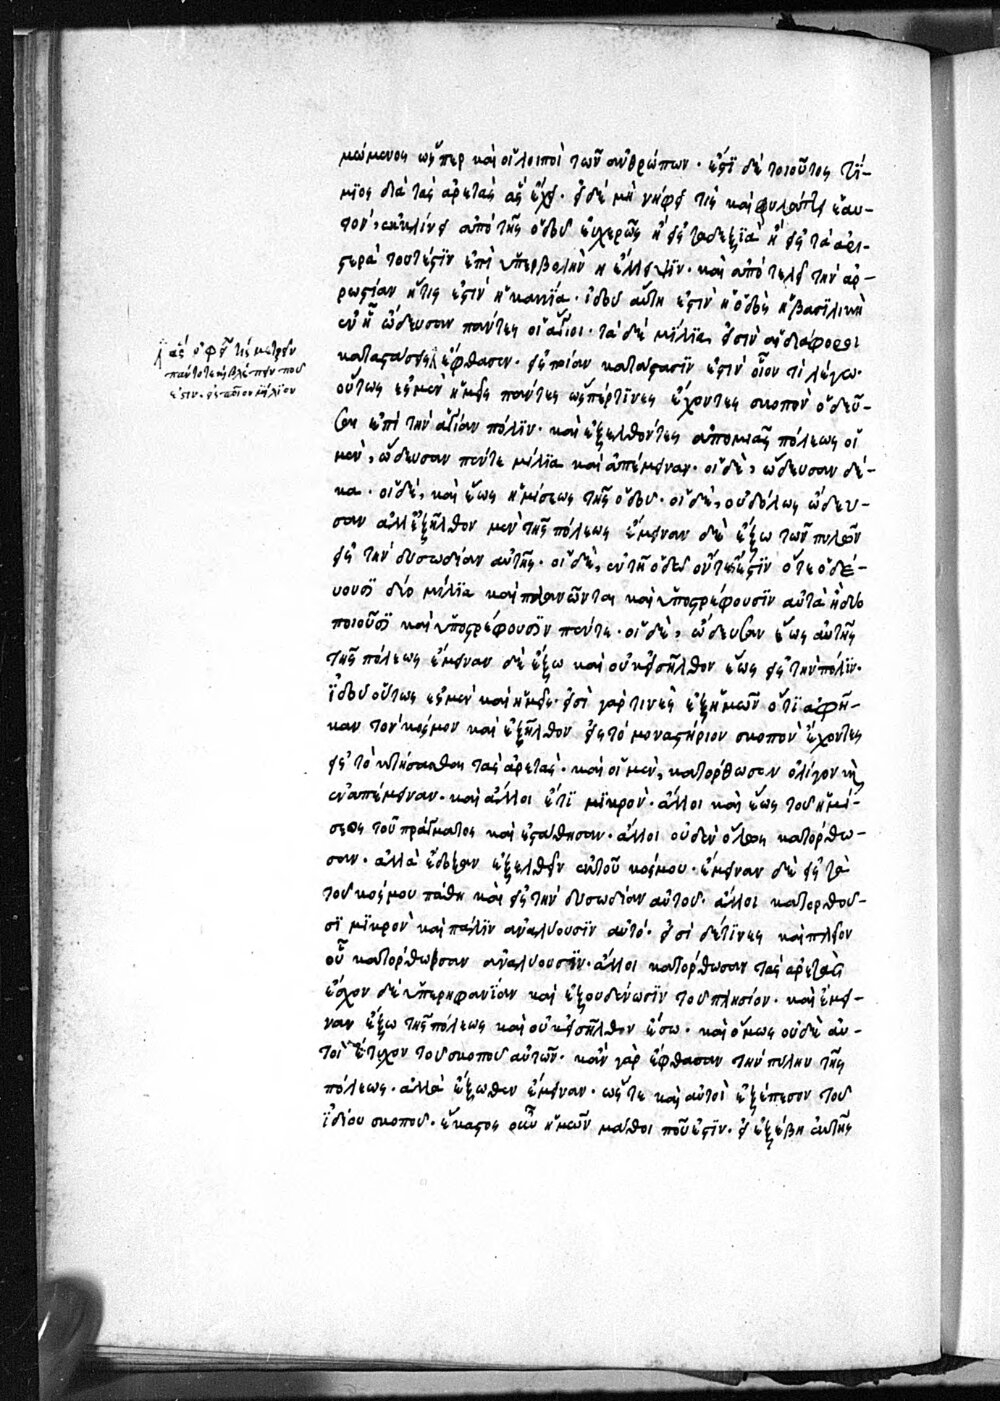 μώμενος ὥσπερ καὶ οἱ λοιποὶ τῶν ἀνθρώπων · ἐστὶ δὲ τοιοῦτος τί-
μϊος διὰ τὰς ἀρετὰς ἃς ἔχει · εἰ δὲ μὴ νήφει τὶς καὶ φυλάττει ἑαυ-
τὸν, ἐκκλίνει ἀπὸ τῆς ὁδοῦ εὐχερῶς ἢ εἰς τὰ δεξϊὰ ἢ εἰς τὰ ἀρι-
στερὰ τουτέστιν ἐπὶ ὑπερβολὴν ἢ ἔλλειψϊν · καὶ ἀποτελεῖ τὴν ἀρ-
ρωστίαν ἥτις ἐστὶν ἡ κακία · ἰδοὺ αὕτη ἐστὶν ἡ ὁδὸς ἡ βασιλικὴ
ἐν ᾗ ὥδευσαν πάντες οἱ ἅγιοι · τὰ δὲ μίλϊα, εἰσὶν αἱ διάφοροι
καταστάσεις
ἔφθασεν · εἰς ποίαν κατάστασϊν ἐστὶν οἷον τί λέγω ·
οὕτως ἐσμὲν ἡμεῖς πάντες ὥσπερ τϊνες ἔχοντες σκοπὸν ὁδεῦ-
σαι ἐπὶ τὴν ἁγίαν πόλϊν · καὶ ἐξελθόντες ἀπὸ μιᾶς πόλεως οἱ
μὲν, ὥδευσαν πέντε μίλϊα καὶ ἀπέμειναν · οἱ δὲ, ὥδευσαν δέ-
κα · οἱ δὲ, καὶ ἕως ἡμίσεως τῆς ὁδοῦ · οἱ δὲ, οὐδόλως ὥδευ-
σαν ἀλλ' ἐξῆλθον μὲν τῆς πόλεως ἔμειναν δὲ ἔξω τῶν πυλῶν
εἰς τὴν δυσωδίαν αὐτῆς · οἱ δὲ, ἐν τῇ ὁδῷ ὄντες
ὅτε ὁδεύ-
ουσϊ δύο μίλϊα καὶ πλανῶνται καὶ ὑποστρέφουσϊν αὐτὰ ἢ δύο
ποιοῦσϊ καὶ ὑποστρέφουσϊν πέντε · οἱ δὲ, ὥδευσαν ἕως αὐτῆς
τῆς πόλεως ἔμειναν δὲ ἔξω καὶ οὐκ εἰσῆλθον ἔσω εἰς τὴν πόλϊν ·
ἰδοὺ οὕτως ἐσμὲν καὶ ἡμεῖς · εἰσὶ γὰρ τινὲς ἐξ ἡμῶν ὅτϊ ἀφῆ-
καν τὸν κόσμον καὶ ἐξῆλθον εἰς τὸ μοναστήριον σκοπὸν ἔχοντες
εἰς τὸ κτήσασθαι τὰς ἀρετὰς · καὶ οἱ μὲν, κατόρθωσαν ὀλίγον καὶ
ἐναπέμειναν · καὶ ἄλλοι ἔτϊ μϊκρὸν · ἄλλοι καὶ ἕως τοῦ ἡμί-
σεος τοῦ πράγματος καὶ ἐστάθησαν · ἄλλοι οὐδὲν ὅλως κατορθώ-
σαν · ἀλλὰ ἔδοξαν ἐξελθεῖν ἐκ τοῦ κόσμου · ἔμειναν δὲ εἰς τὰ
τοῦ κόσμου πάθη καὶ εἰς τὴν δυσωδίαν αὐτοῦ · ἄλλοι κατορθοῦ-
σϊ μϊκρὸν καὶ πάλϊν ἀναλύουσϊν αὐτό · εἰσὶ δέ τϊνες καὶ πλεῖον
οὗ κατόρθωσαν ἀναλύουσϊν · ἄλλοι κατόρθωσαν τὰς ἀρετὰς
ἔσχον δὲ ὑπερηφανϊαν καὶ ἐξουδένωσϊν τοῦ πλησίον · καὶ ἔμει-
ναν ἔξω τῆς πόλεως καὶ οὐκ εἰσῆλθον ἔσω · καὶ ὅμως οὐδὲ αὐ-
τοὶ ἔτυχον τοῦ σκοποῦ αὐτῶν · κἂν γὰρ ἔφθασαν τὴν πύλην τῆς
πόλεως · ἀλλὰ ἔξωθεν ἔμειναν · ὥστε καὶ αὐτοὶ ἐξέπεσον τοῦ
ἰδίου σκοποῦ · ἕκαστος οὖν ἡμῶν μάθοι ποῦ ἐστϊν · εἰ ἐξέβη ἐκ τῆς